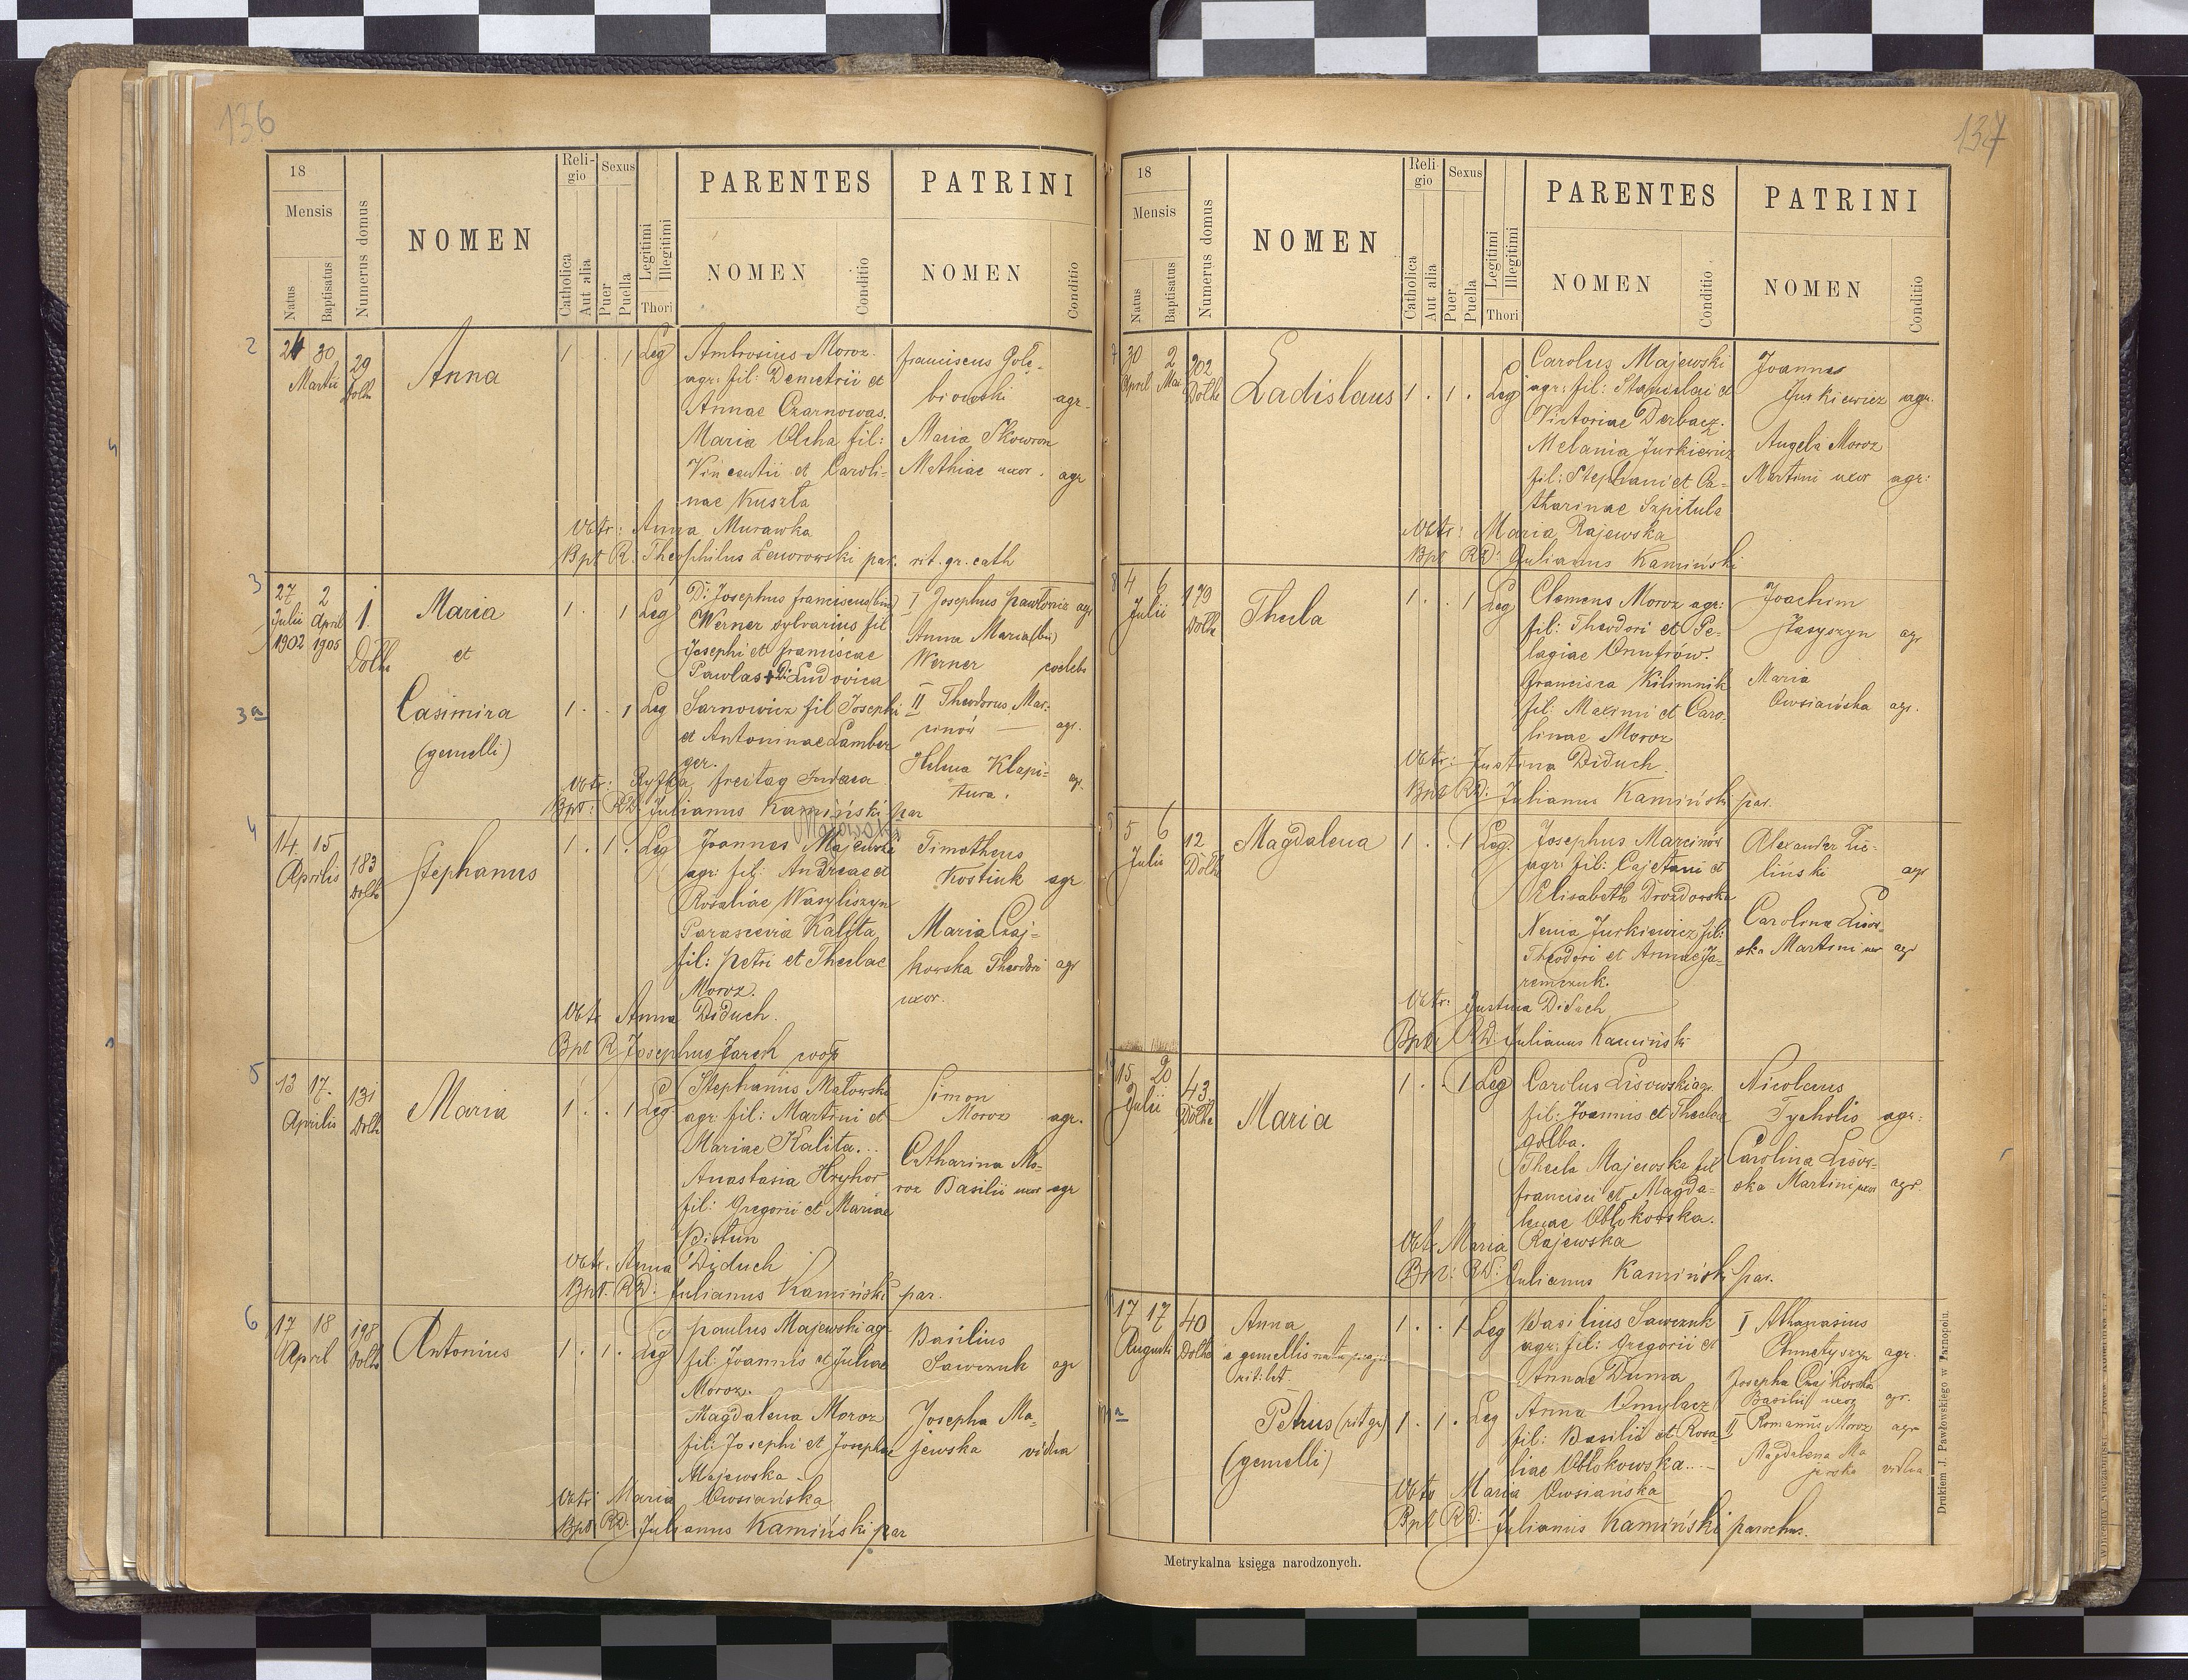 136
18
Mensis
Natus
Baptisatus
Numerus domus
NOMEN
Reli-
gio
Catholica
Aut alia
Sexus
Puer
Puella
Legitimi
Illegitimi
Thori
PARENTES
NOMEN
Conditio
PATRINI
NOMEN
Conditio
2
30
Martii
29
Dolhe
Anna
1 . . 1 Leg
Ambrosius Moroz
agr: fil: Demetrii et
Annae Czarnowas.
Maria Olcha fil:
Vincentii et Caroli-
nae Kuszła
Franciscus Golę-
biowski agr.
Maria Skowron
Mathiae uxor. agr
Obtr: Anna Murawka
Bpt R. Theophilus Leworowski par. rit. gr. cath
3
27 2
Julii April
1902 1905
1.
Dolhe
Maria
et
3a
Casimira
(gemelli)
1 . . 1 Leg
1 . . 1 Leg
D: Josephus Franciscus (bin)
Werner sylvarius fil
Josephi et Franciscae
Pawlas + D: Ludovica
Sarnowicz fil Josephi
et Antoninae Lamber
ger.
I Josephus Pawłowicz agr
Anna Maria (bin)
Werner coelebs
II Theodorus Mar-
cinów — agr.
Helena Klapi-
tura. agr.
Obtr: Ryfka Freitag Judaea
Bpt: RD: Julianus Kamiński par
4
14. 15
Aprilis
183
Dolhe
Stephanus
1 . 1 . Leg
Joannes Majewski
agr: fil: Andreae et
Rosaliae Wasyliszyn
Parascevia Kalita
fil: Petri et Theclae
Moroz.
Timotheus
Kostiuk agr
Maria Czaj-
kowska Theodori agr
uxor.
Obtr Anna Diduch.
Bpt R Josephus Jarek coop
5
13 17.
Aprilis
131
Dolhe
Maria
1 . . 1 Leg
Stephanus Matowski
agr: fil: Martini et
Mariae Kalita...
Anastasia Hryhor
fil: Gregorii et Mariae
Pistun
Simon
Moroz agr.
Catharina Mo-
roz Basilii uxor agr
Obtr. Anna Diduch
Bpt. RD: Julianus Kamiński par.
6
17 18
April
198
Dolhe
Antonius
1 . 1 . Leg
Paulus Majewski agr
fil: Joannis et Juliae
Moroz.
Magdalena Moroz
fil: Josephi et Josephae
Majewska
Basilius
Sawczuk agr
Josepha Ma-
jewska vidua
Obtr: Maria Owsiańska
Bpt: RD: Julianus Kamiński par
137
18
Mensis
Natus
Baptisatus
Numerus domus
NOMEN
Reli-
gio
Catholica
Aut alia
Sexus
Puer
Puella
Legitimi
Illegitimi
Thori
PARENTES
NOMEN
Conditio
PATRINI
NOMEN
Conditio
7
30 2
April Mai
202
Dolhe
Ladislaus
1 . 1 . Leg
Carolus Majewski
agr: fil: Stanislai et
Victoriae Derbacz.
Melania Jurkiewicz
fil: Stephani et Ca-
tharinae Szpitula
Joannes
Jurkiewicz agr.
Angela Moroz
Martini uxor agr:
Obtr: Maria Rajewska
Bpt RD: Julianus Kamiński
8
4 6
Julii
179
Dolhe
Thecla
1 . . 1 Leg
Clemens Moroz agr:
fil: Theodori et Pe-
lagiae Onufrów.
Francisca Kilimnik
fil: Maximi et Caro-
linae Moroz
Joachim
Stasyszyn agr
Maria
Owsiańska agr.
Obtr: Justina Diduch
Bpt RD: Julianus Kamiński par.
5 6
Julii
12
Dolhe
Magdalena
1 . . 1 Leg.
Josephus Marcinów
agr: fil: Cajetani et
Elisabeth Drozdowska
Xenia Jurkiewicz fil:
Theodori et Annae Ja-
remczuk.
Alexander Zie-
liński agr
Carolina Lisow-
ska Martini uxor agr
Obtr: Justina Diduch
Bpt RD: Julianus Kamiński
15 20
Julii
43
Dolhe
Maria
1 . . 1 Leg
Carolus Lisowski agr.
fil: Joannis et Theclae
Golba.
Thecla Majewska fil
Francisci et Magda-
lenae Obłokowska.
Nicolaus
Tycholis agr:
Carolina Lisow-
ska Martini uxor agr.
Obtr Maria Rajewska
Bpt: RD: Julianus Kamiński par.
17 17
Augusti
40
Dolhe
Anna
e gemellis nata
rit: lat.
Petrus (rit gr)
(gemelli)
1 . . 1 Leg
1 . 1 . Leg
Basilius Sawczuk
agr: fil: Gregorii et
Annae Duma
Anna Dmylacz
fil: Basilii et Rosa-
liae Obłokowska...
I Athanasius
Chmetyszyn agr.
Josepha Czajkowska
Basilii uxor agr.
II Romanus Moroz agr
Magdalena Ma
jewska vidua
Obtr Maria Owsiańska
Bpt RD: Julianus Kamiński parochus.
Metrykalna księga narodzonych.
Drukiem J. Pawłowskiego w Tarnopolu.